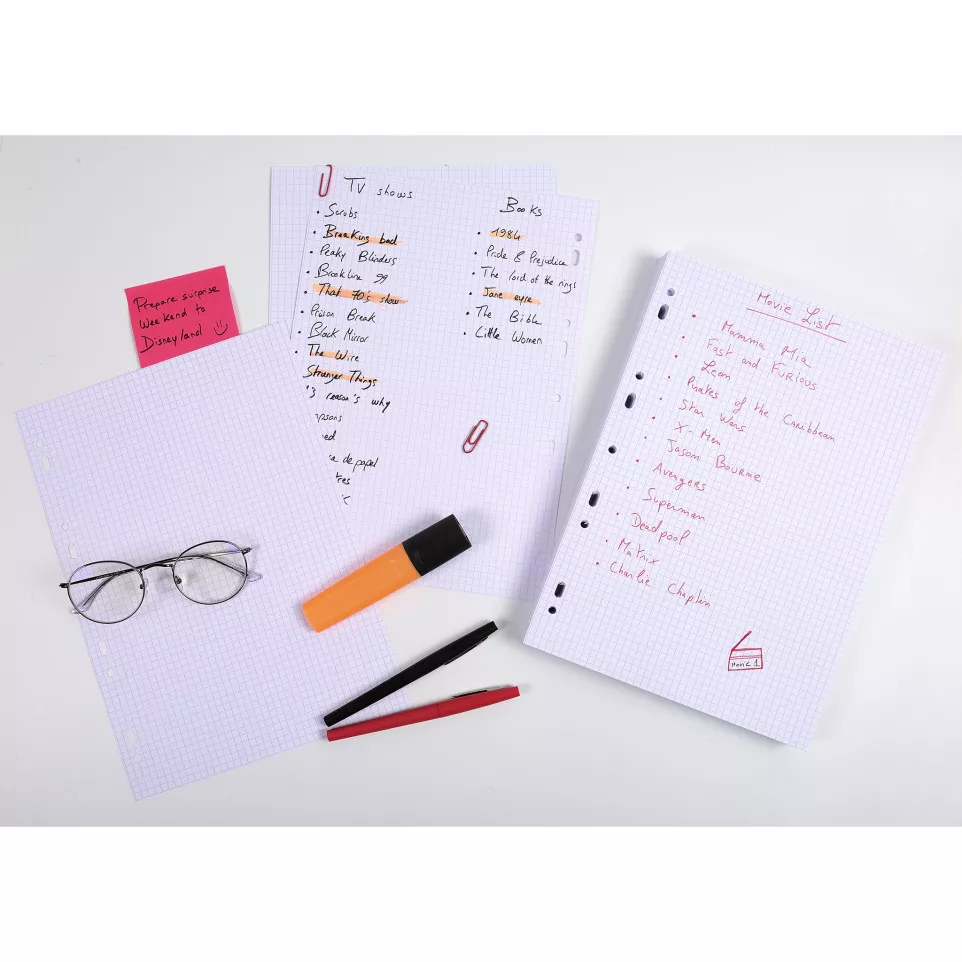 Prepare surprise
Weekend to
Disneyland
TV shows
Scrubs
Breaking bad
Peaky Blinders
Brookline 99
That 70's show
Prison Break
Black Mirror
The Wire
Stranger Things
3 reason's why
psons
ed
de papel
res
Books
1984
Pride & Prejudice
The lord of the rings
Jane eyre
The Bible
Little Women
Movie List
Mamma Mia
Fast and Furious
Leon
Pirates of the Caribbean
Star Wars
X-Men
Jason Bourne
Avengers
Superman
Deadpool
Matrix
Charlie Chaplin
Movie 1